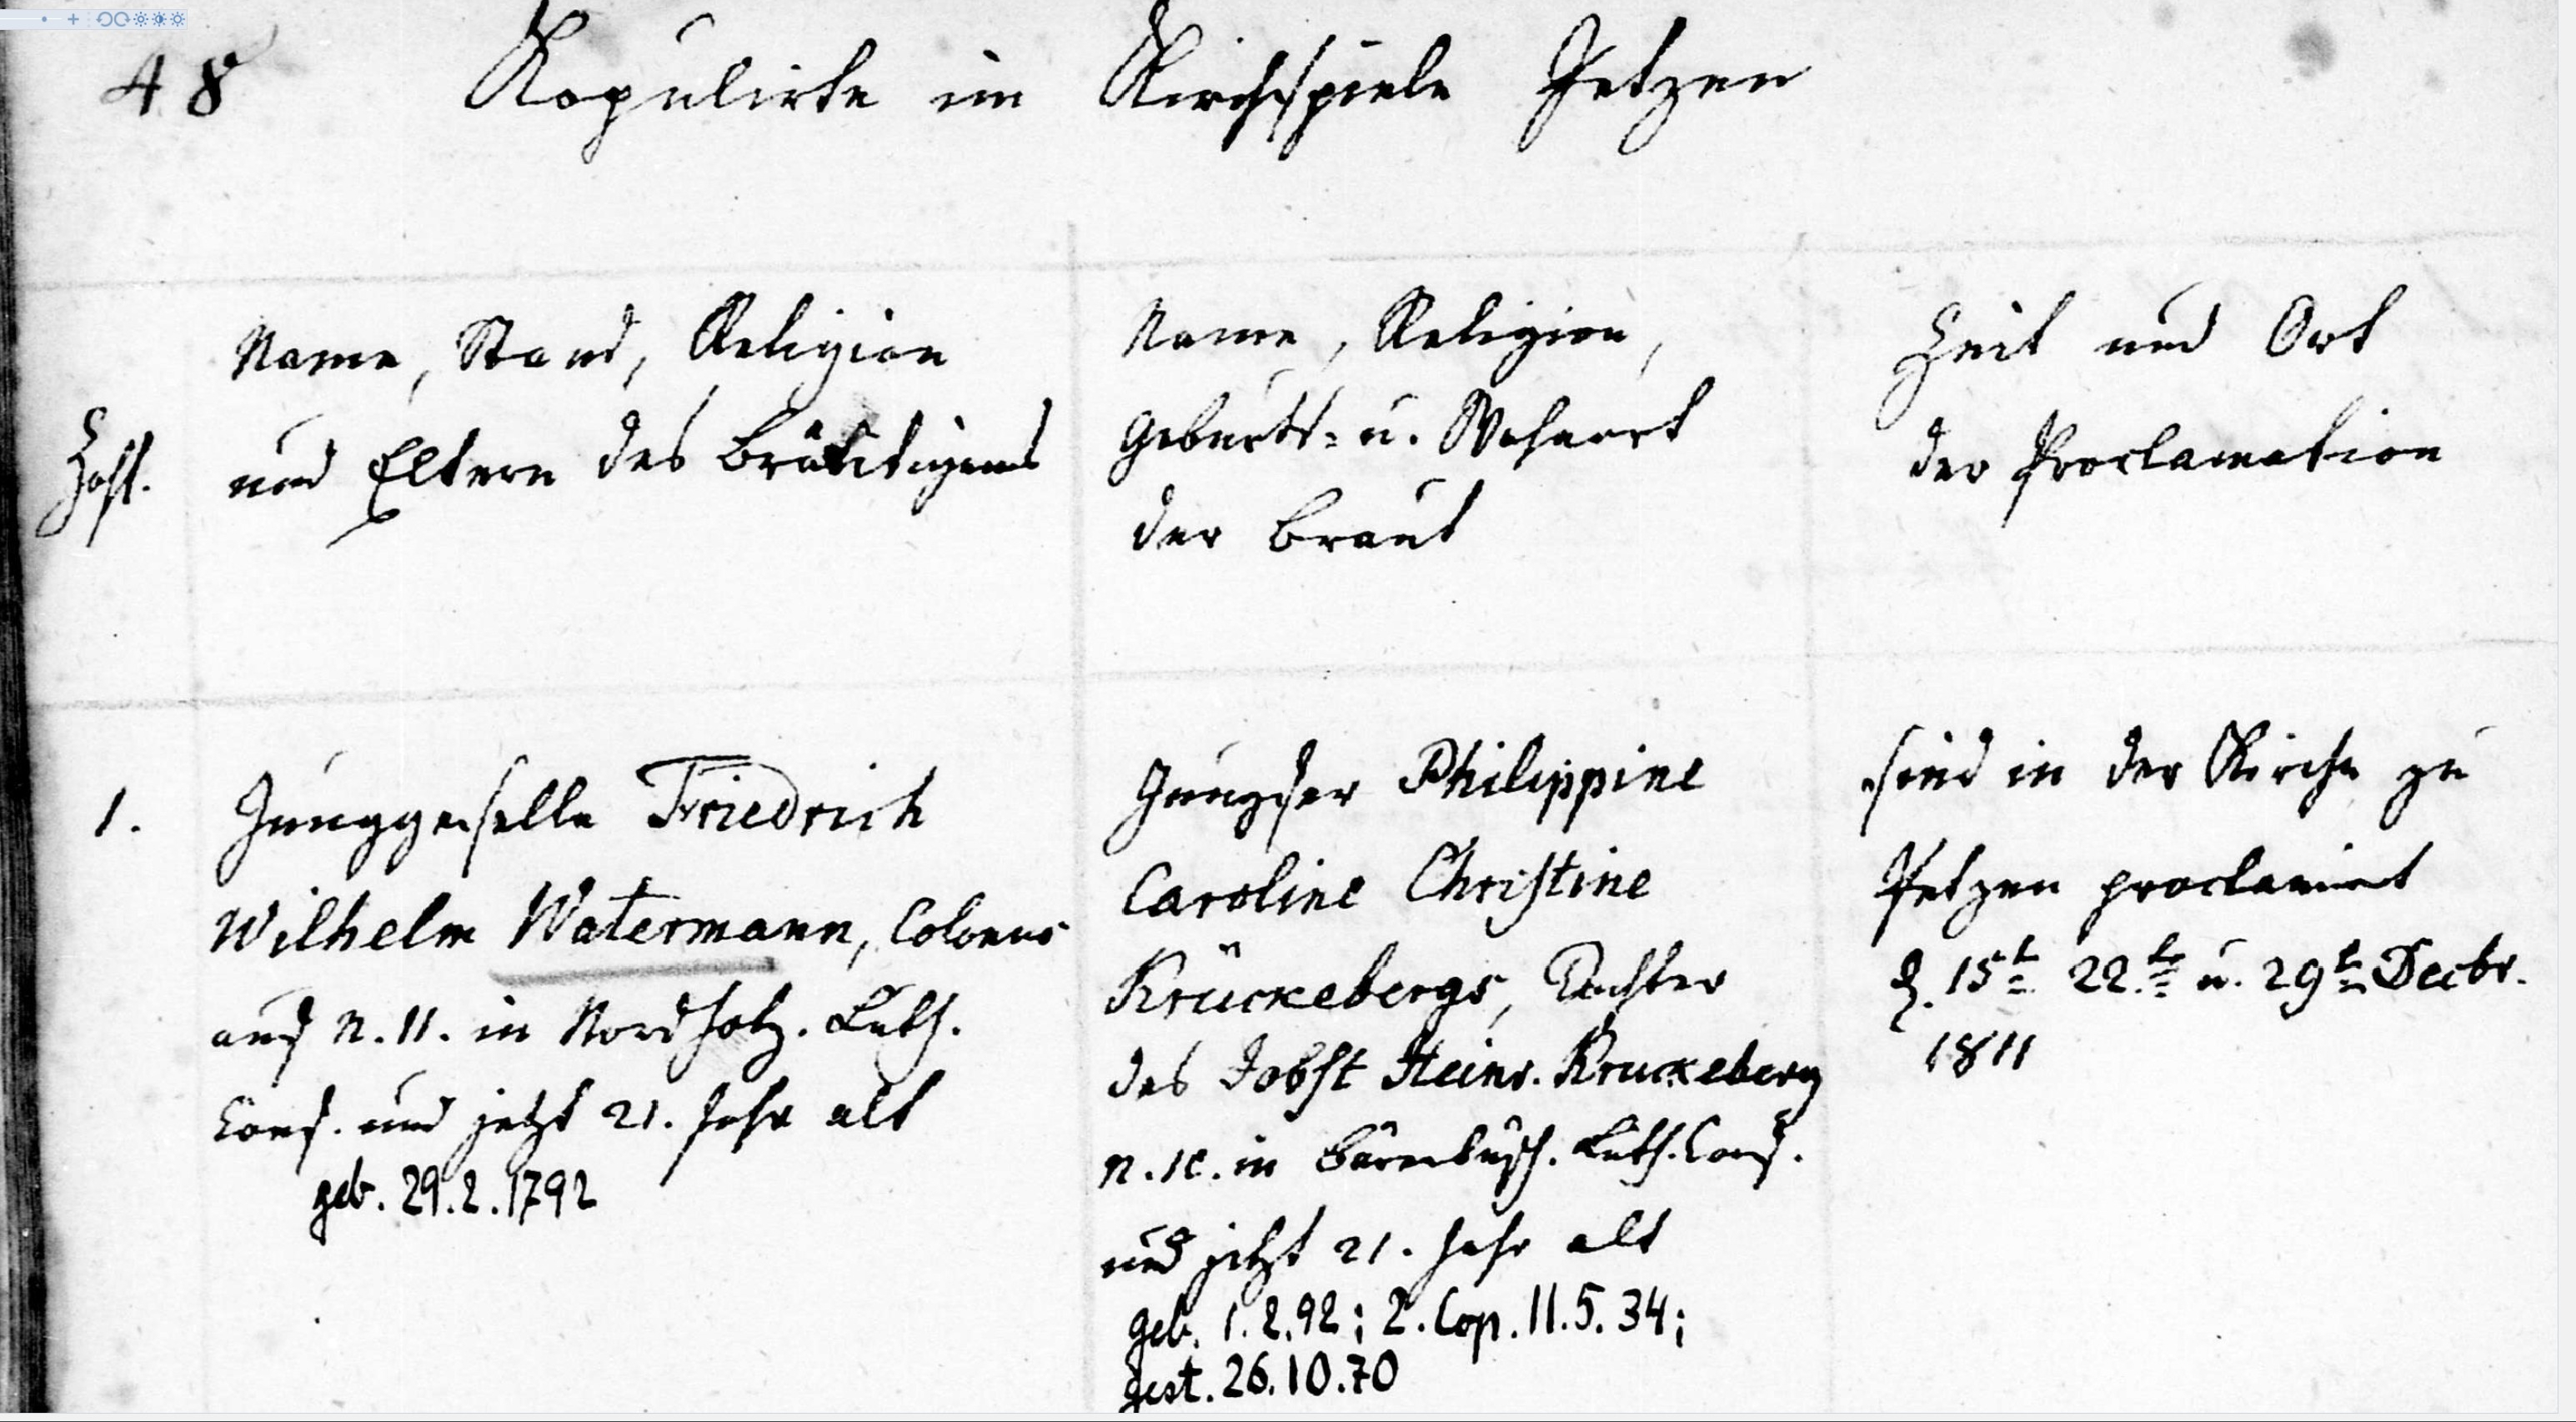 48 Kopulirte im Kirchspiele Petzen
Name, Stand, Religion
und Eltern des Bräutigams
Zahl.
Name, Religion,
Geburts- u. Wohnort
der Braut
Zeit und Ort
der Proclamation
1.
Junggeselle Friedrich
Wilhelm Watermann, Colonus
aus N. 11. in Nordholz. Luth.
Conf. und jetzt 21. Jahr alt
geb. 29.2.1792
Jungfer Philippine
Caroline Christine
Krückebergs, Tochter
des Jobst Heinr. Kruckeberg
N. in Bärenbusch. Luth. Conf.
und jetzt 21. Jahr alt
geb. 1.2.92; 2. Cop. 11.5.34;
gest. 26.10.70
sind in der Kirche zu
Petzen proclamirt
d. 15t 22.t u. 29t Decbr.
1811